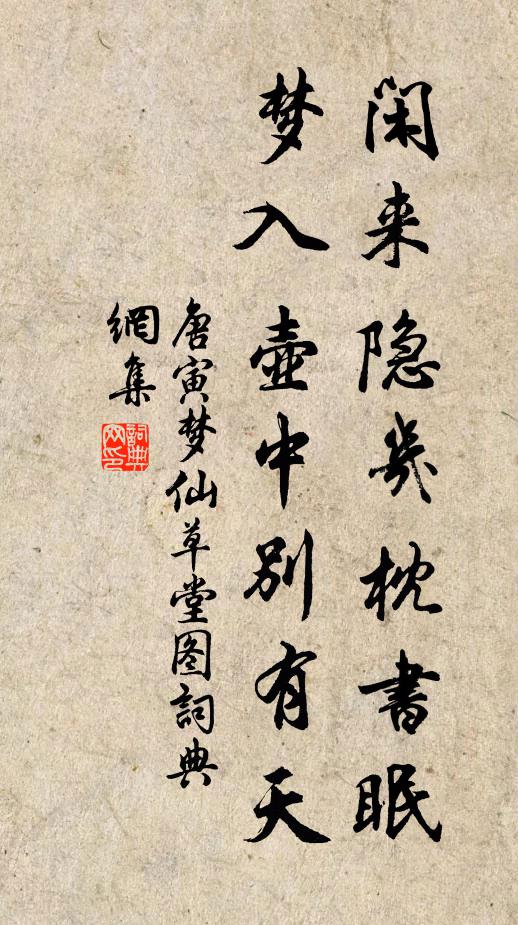 闲来隐几枕书眠
梦入壶中别有天
唐寅梦仙草堂图词典
網集
詞典
网印